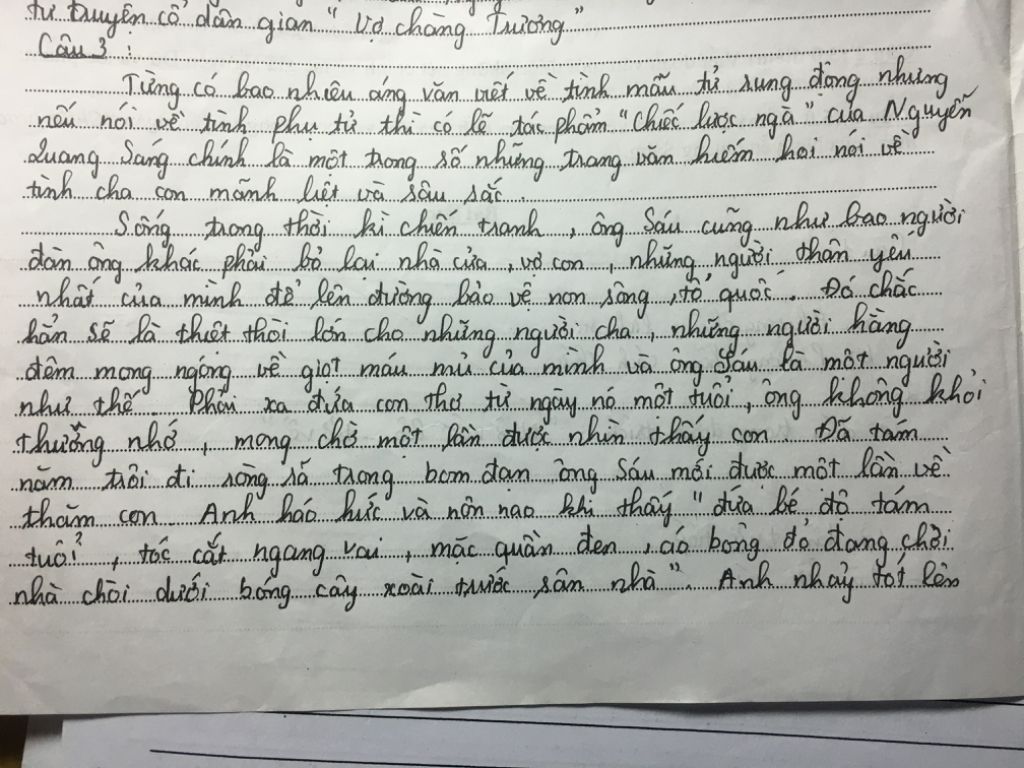 từ truyện cổ dân gian "Vợ chàng Trương"
Câu 3 :
Từng có bao nhiêu áng văn viết về tình mẫu tử rung động nhưng
nếu nói về tình phụ tử thì có lẽ tác phẩm "Chiếc lược ngà" của Nguyễn
Quang Sáng chính là một trong số những trang văn hiếm hoi nói về
tình cha con mãnh liệt và sâu sắc.
Sống trong thời kì chiến tranh, ông Sáu cũng như bao người
đàn ông khác phải bỏ lại nhà cửa, vợ con, những người thân yêu
nhất của mình để lên đường bảo vệ non sông, tổ quốc. Đó chắc
hẳn sẽ là thiệt thòi lớn cho những người cha, những người hàng
đêm mong ngóng về giọt máu mủ của mình và ông Sáu là một người
như thế. Phải xa đứa con thơ từ ngày nó một tuổi, ông không khỏi
thương nhớ, mong chờ một lần được nhìn thấy con. Đã tám
năm trôi đi ròng rã trong bom đạn ông Sáu mới được một lần về
thăm con. Anh háo hức và nôn nao khi thấy "đứa bé độ tám
tuổi, tóc cắt ngang vai, mặc quần đen, áo bông đỏ đang chơi
nhà chòi dưới bóng cây xoài trước sân nhà". Anh nhảy tót lên